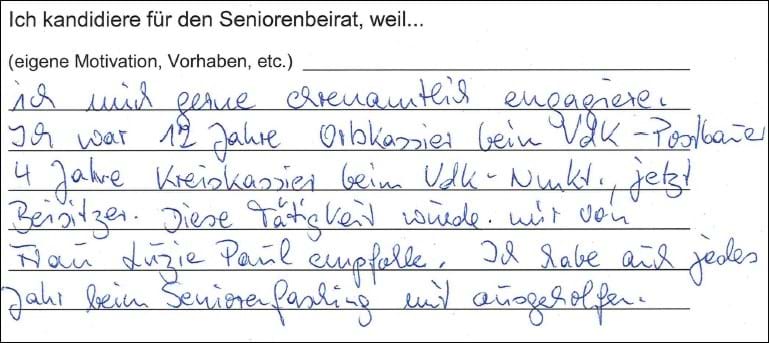 Ich kandidiere für den Seniorenbeirat, weil...
(eigene Motivation, Vorhaben, etc.)
ich mich gerne ehrenamtlich engagiere.
Ich war 12 Jahre Ortskassier beim VdK-Postbauer
4 Jahre Kreiskassier beim VdK-Nmkt., jetzt
Beisitzer. Diese Tätigkeit wurde mir von
Frau Luzie Paul empfolle. Ich habe auch jedes
Jahr beim Seniorenfasching mit ausgeholfen.